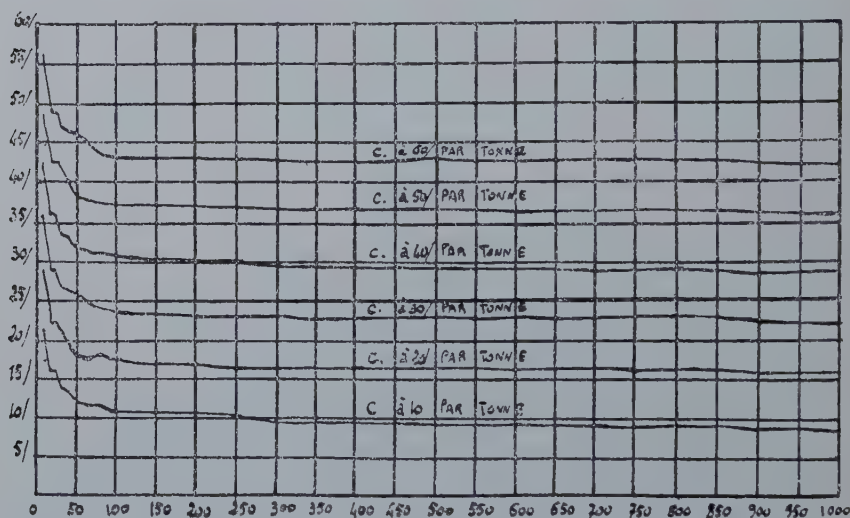 60/
55/
50/
45/
40/
35/
30/
25/
20/
15/
10/
5/
C. à 60/ PAR TONNE
C. à 50/ PAR TONNE
C. à 40/ PAR TONNE
C. à 30/ PAR TONNE
C. à 20/ PAR TONNE
C à 10 PAR TONNE
0 50 100 150 200 250 300 350 400 450 500 550 600 650 700 750 800 850 900 950 1000